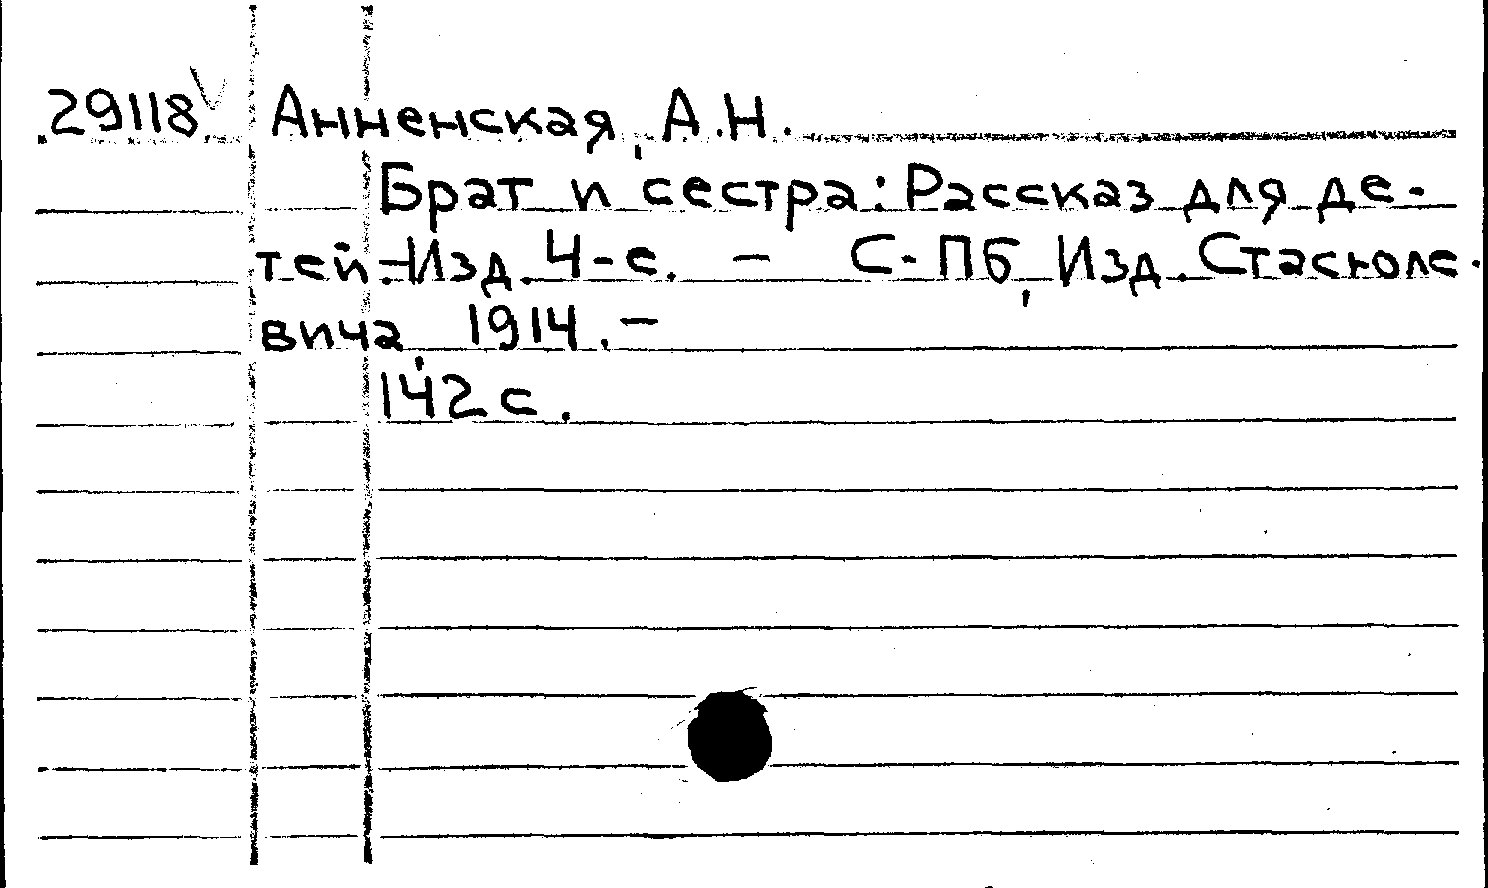 29118 Анненская, А.Н.
Брат и сестра: Рассказ для де-
тей.-Изд. 4-е. — С-Пб, Изд. Стасюле-
вича, 1914. —
142 с.